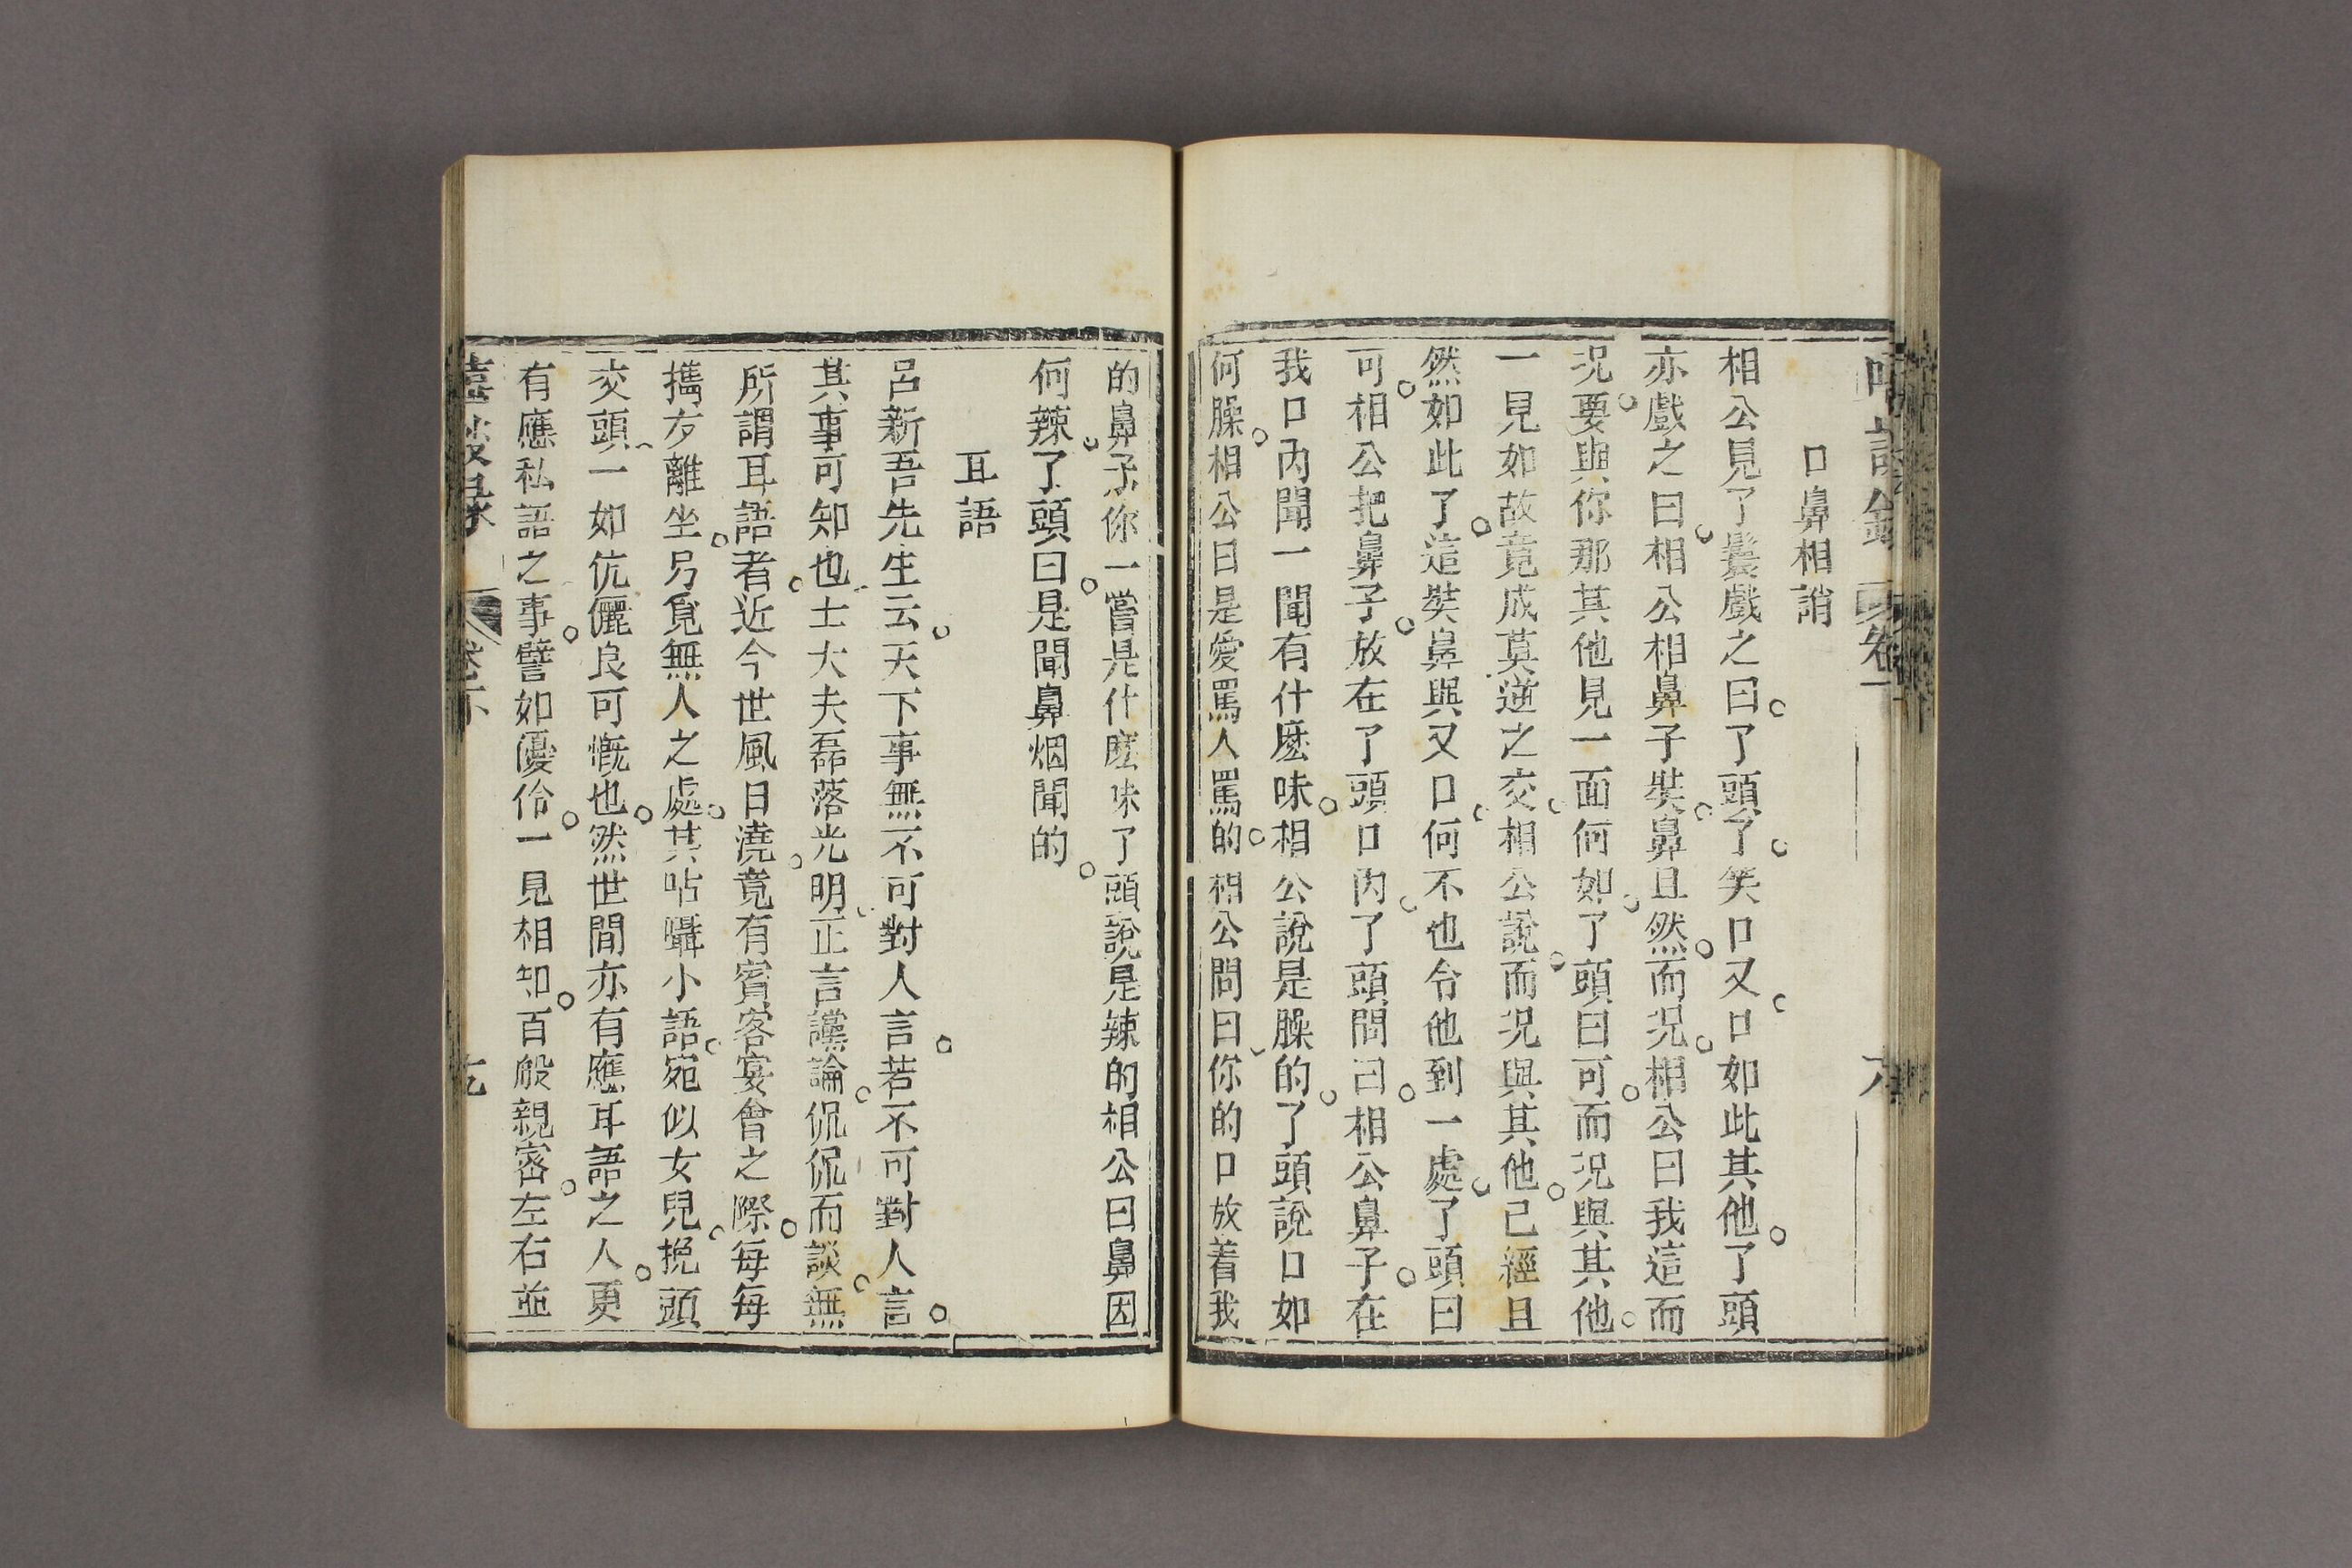 口鼻相誚
相公見了鬟戲之曰了頭了笑口又口如此其他了頭
亦戲之曰相公相鼻子奘鼻且然而况相公曰我這而
况要與你那其他見一面何如了頭曰可而况與其他
一見如故竟成莫逆之交相公說而况與其他已經且
然如此了這奘鼻與又口何不也令他到一處了頭曰
可相公把鼻子放在了頭口內了頭問曰相公鼻子在
我口內聞一聞有什麽味相公說是臊的了頭說口如
何臊相公曰是愛罵人罵的相公問曰你的口放着我
的鼻子你一嘗是什麽味了頭說是辣的相公曰鼻因
何辣了頭曰是聞鼻烟聞的
耳語
呂新吾先生云天下事無不可對人言若不可對人言
其事可知也士大夫磊落光明正言讜論侃侃而談無
所謂耳語者近今世風日澆竟有賓客宴會之際每每
攜友離坐另覓無人之處其呫囁小語宛似女兒挽頭
交頭一如伉儷良可慨也然世間亦有應耳語之人更
有應私語之事譬如優伶一見相知百般親密左右並